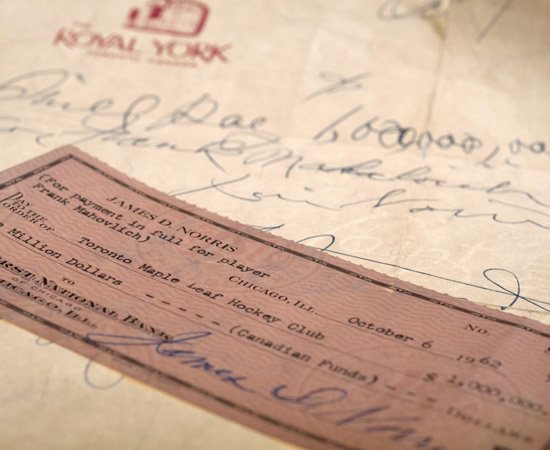 THE
ROYAL YORK
TORONTO CANADA
1,000,000.00
for Frank Mahovlich
Jim Norris
JAMES D. NORRIS
(for payment in full for player
Frank Mahovlich)
CHICAGO, ILL. October 6 1962 No.
PAY TO THE
ORDER OF Toronto Maple Leaf Hockey Club $ 1,000,000.
Million Dollars - - - - - (Canadian Funds) - - - DOLLARS
TO
FIRST NATIONAL BANK
OF CHICAGO
CHICAGO, ILL.
James D Norris